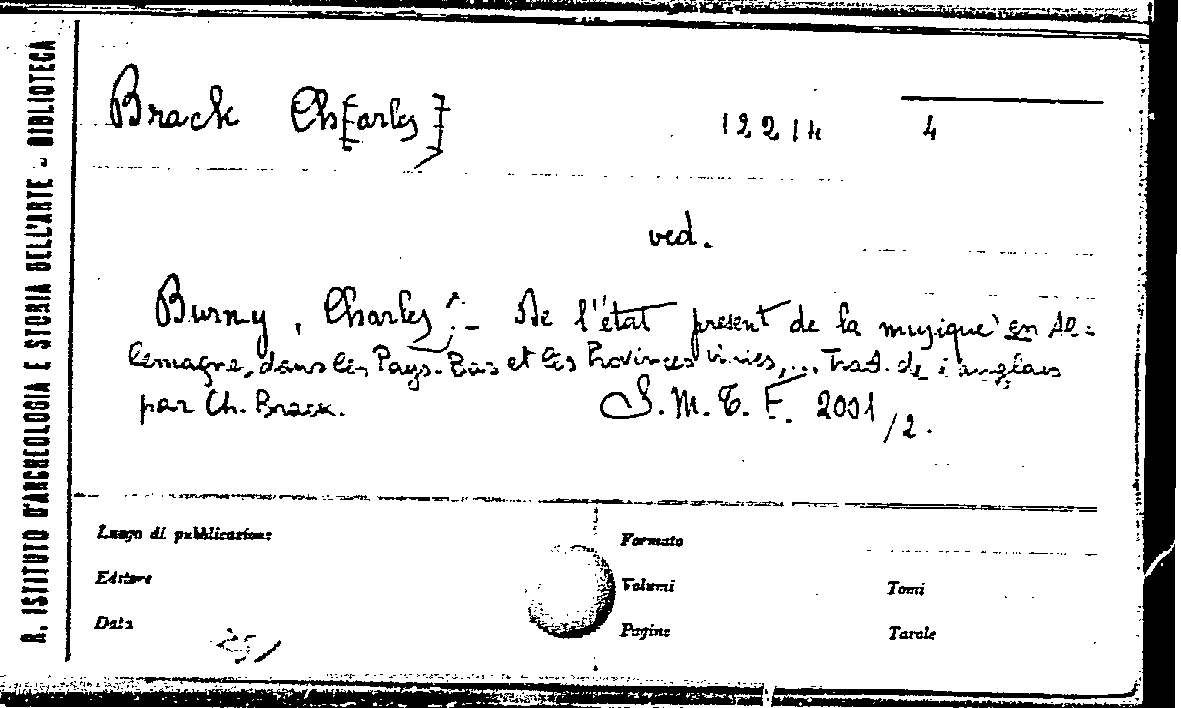 R. ISTITUTO D'ARCHEOLOGIA E STORIA DELL'ARTE - BIBLIOTECA
Brack Ch[arles]
12214 4
ved.
Burney, Charles: - De l'état présent de la musique en Al=
lemagne, dans les Pays-Bas et les Provinces Unies,... Trad. de l'anglais
par Ch. Brack. S. M. T. F. 2001/2.
Luogo di pubblicazione
Formato
Editore
Volumi
Tomi
Data
Pagine
Tavole